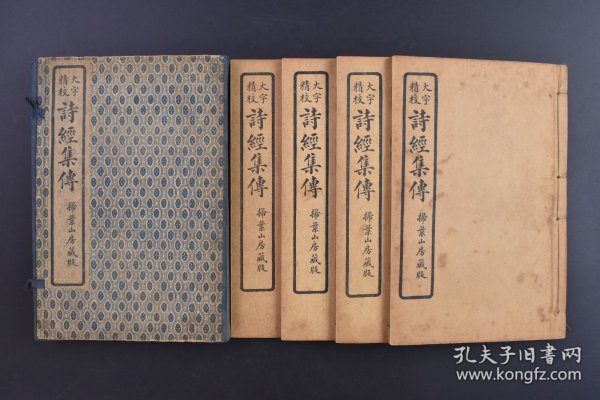 大字
精校
詩經集傳
掃葉山房藏版
大字
精校
詩經集傳
掃葉山房藏版
大字
精校
詩經集傳
掃葉山房藏版
大字
精校
詩經集傳
掃葉山房藏版
大字
精校
詩經集傳
掃葉山房藏版
孔夫子旧书网
www.kongfz.com